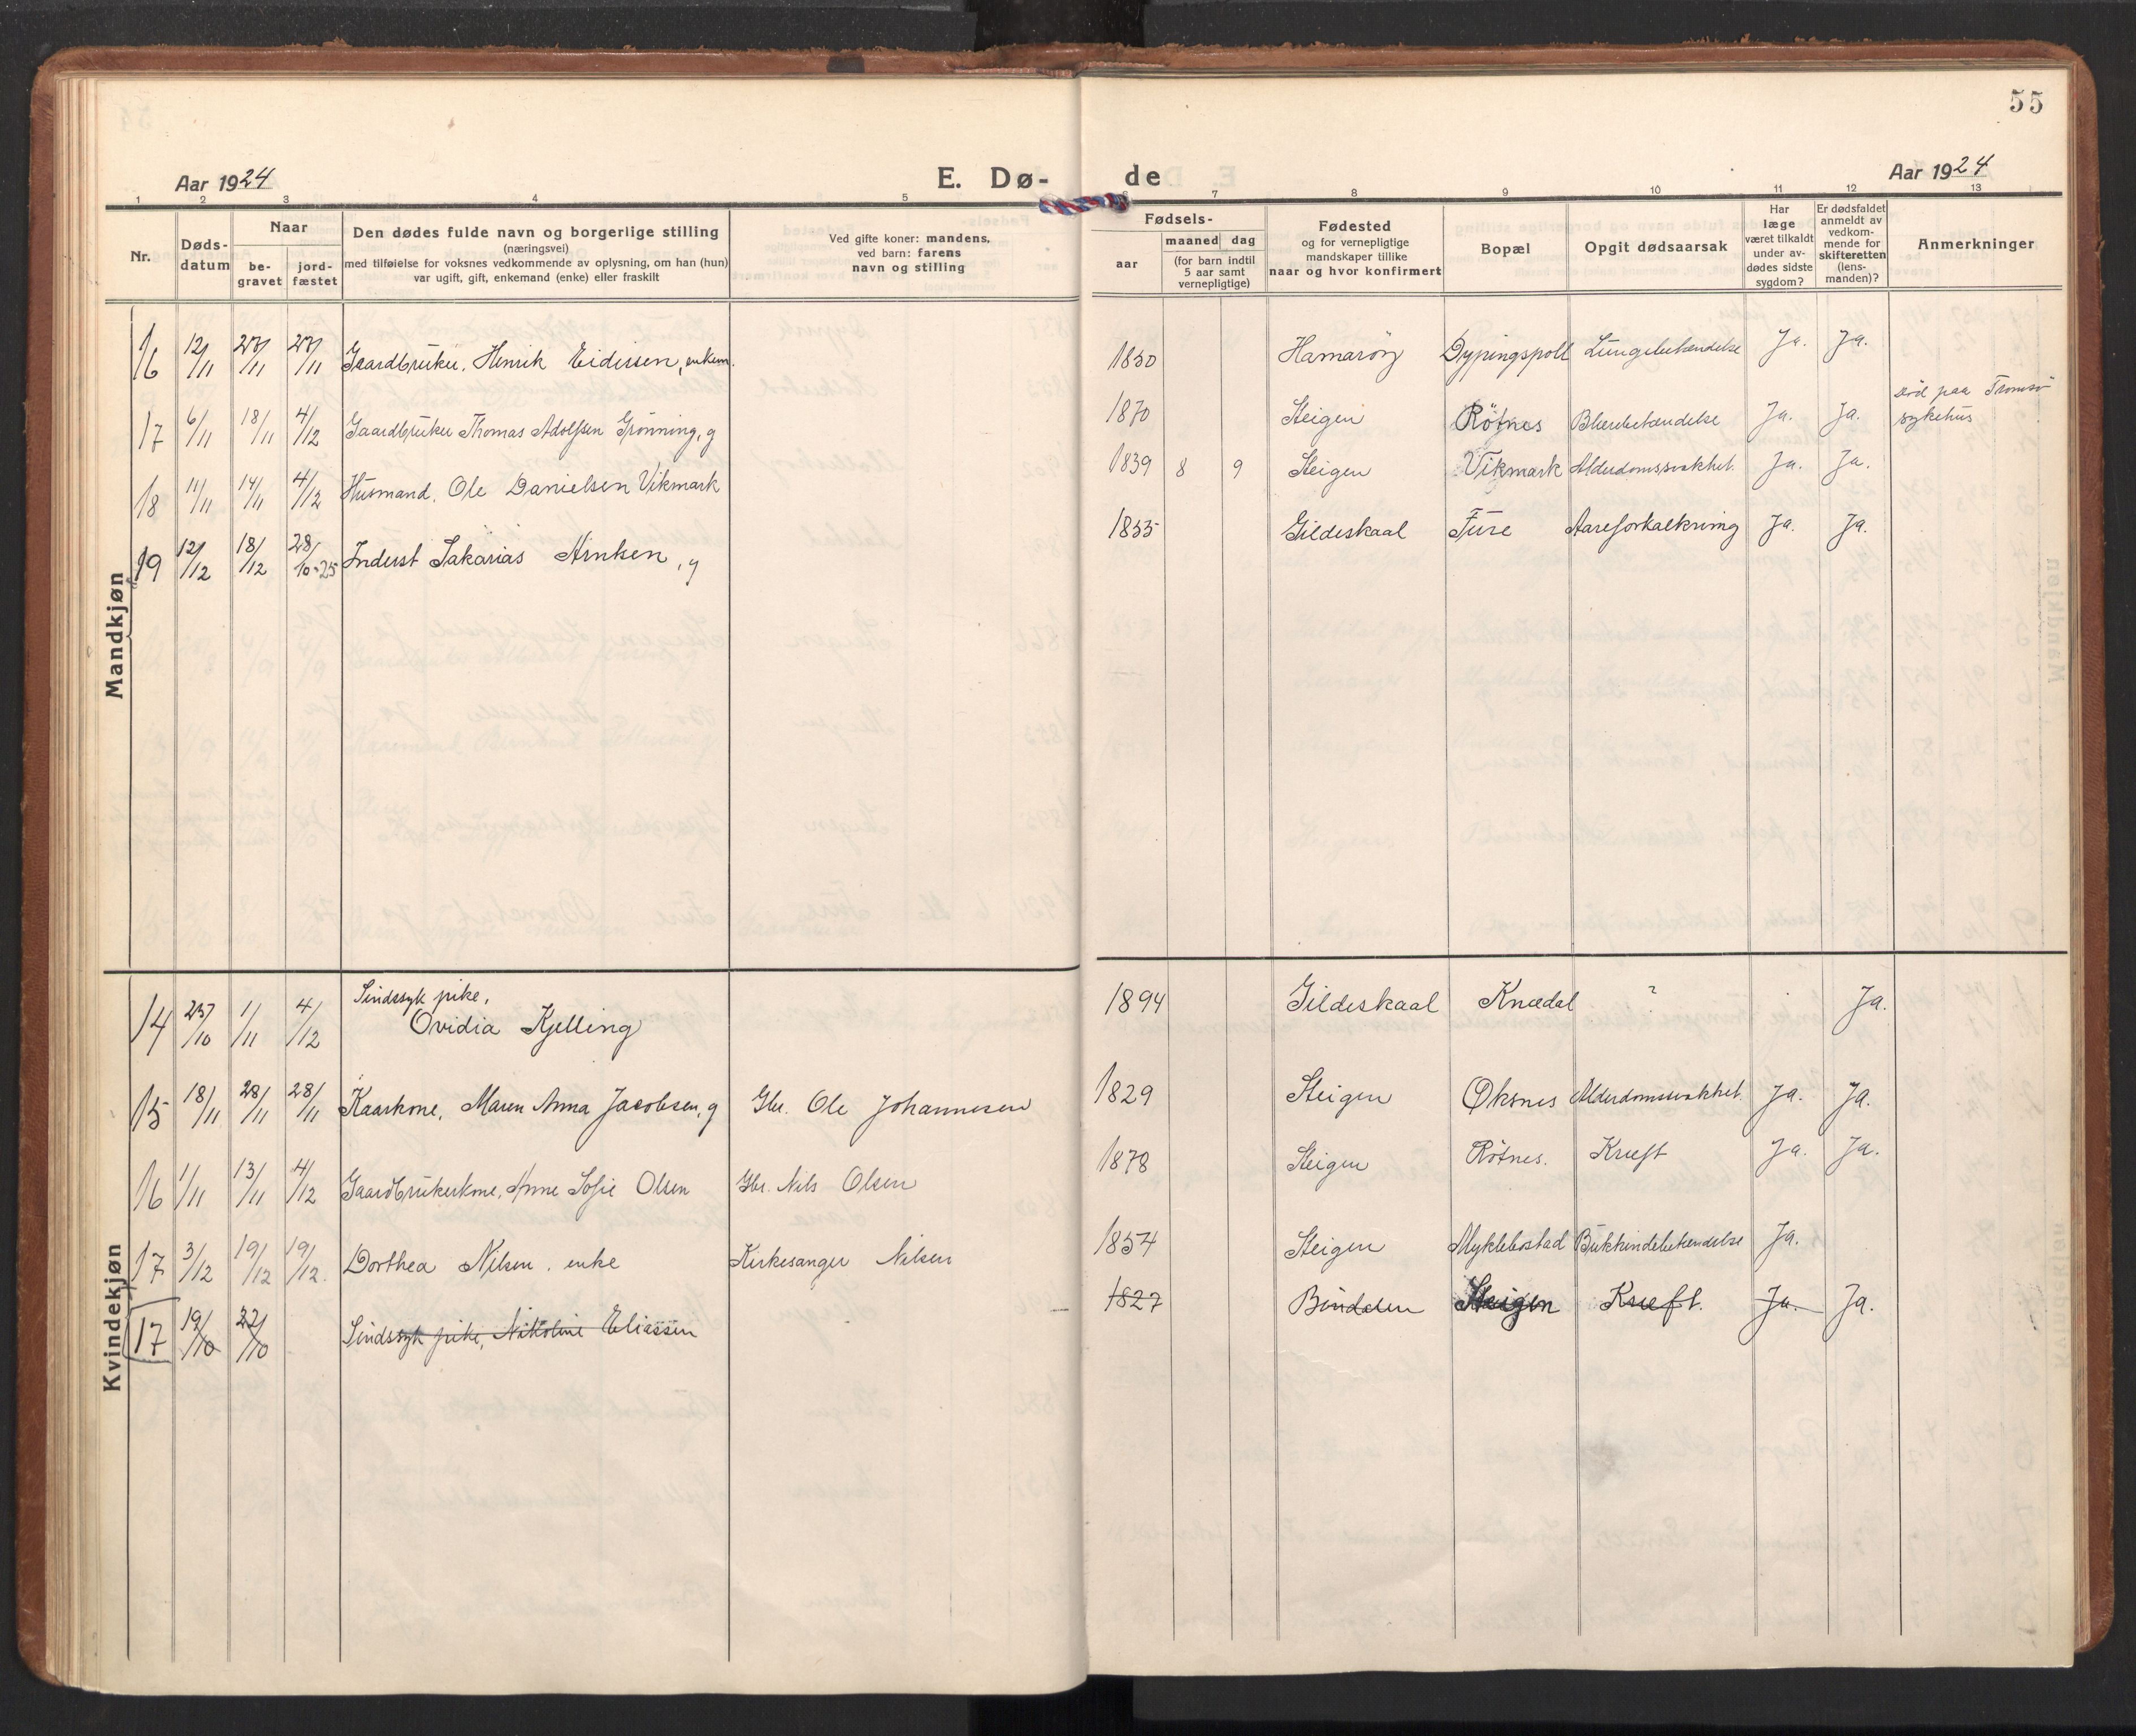 55
Aar 1924 E. Dø- de Aar 1924
1 2 3 4 5 6 7 8 9 10 11 12 13
Nr.
Døds-
datum
Naar
be-
gravet
jord-
fæstet
Den dødes fulde navn og borgerlige stilling
(næringsvei)
med tilføielse for voksnes vedkommende av oplysning, om han (hun)
var ugift, gift, enkemand (enke) eller fraskilt
Ved gifte koner: mandens,
ved barn: farens
navn og stilling
Fødsels-
aar
maaned dag
(for barn indtil
5 aar samt
vernepligtige)
Fødested
og for vernepligtige
mandskaper tillike
naar og hvor konfirmert
Bopæl
Opgit dødsaarsak
Har
læge
været tilkaldt
under av-
dødes sidste
sygdom?
Er dødsfaldet
anmeldt av
vedkom-
mende for
skifteretten
(lens-
manden)?
Anmerkninger
Mandkjøn
16 12/11 27/11 27/11 Gaardbruker, Henrik Eidissen, enkem. 1850 Hamarøy Dypingspoll Lungebetændelse Ja. Ja.
17 6/11 18/11 4/12 Gaardbruker Thomas Adolfsen Grønning, g 1870 Steigen Røtnes Blærebetændelse Ja. Ja. død paa Tromsø
sykehus
18 11/11 14/11 4/12 Husmand, Ole Danielsen Vikmark 1839 8 9 Steigen Vikmark Alderdomssvakhet. Ja. Ja.
19 12/12 18/12 28/10-25 Inderst Sakarias Arntsen, g 1855 Gildeskaal Fure Aareforkalkning Ja. Ja.
Kvindekjøn
14 23/10 1/11 4/12 Sindssyk pike,
Ovidia Kjelling 1894 Gildeskaal Knædal ? Ja.
15 18/11 28/11 28/11 Kaarkone, Maren Anna Jacobsen, g Gbr. Ole Johannesen 1829 Steigen Øksnes Alderdomssvakhet. Ja. Ja.
16 1/11 13/11 4/12 Gaardbrukerkone, Anne Sofie Olsen Gbr. Nils Olsen 1878 Steigen Røtnes. Kræft Ja. Ja.
17 3/12 19/12 19/12. Dorthea Nilsen. enke Kirkesanger Nilsen 1854 Steigen Myklebostad Bukhindebetændelse Ja.
17 19/10 22/10 Sindssyk pike, Nikoline Eliassen 1827 Bindalen Steigen Kræft. Ja. Ja.